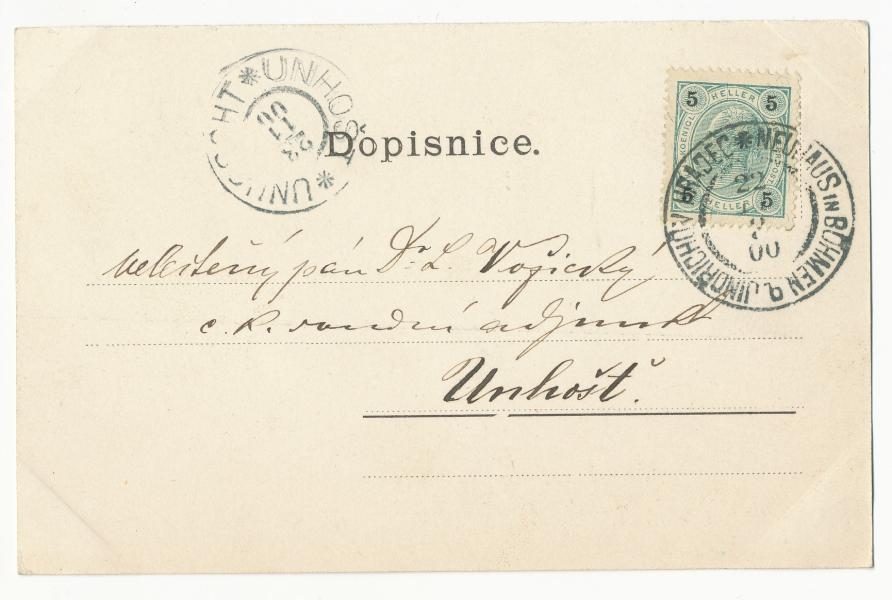 UNHOŠŤ * UNHOSCHT *
23 1 00
Dopisnice.
5 HELLER 5
5 HELLER 5
NEUHAUS IN BÖHMEN * JINDŘICHŮV HRADEC
22 1 00
velectěný pán Dr. L. Vošický
c. k. soudní adjunkt
Unhošť.